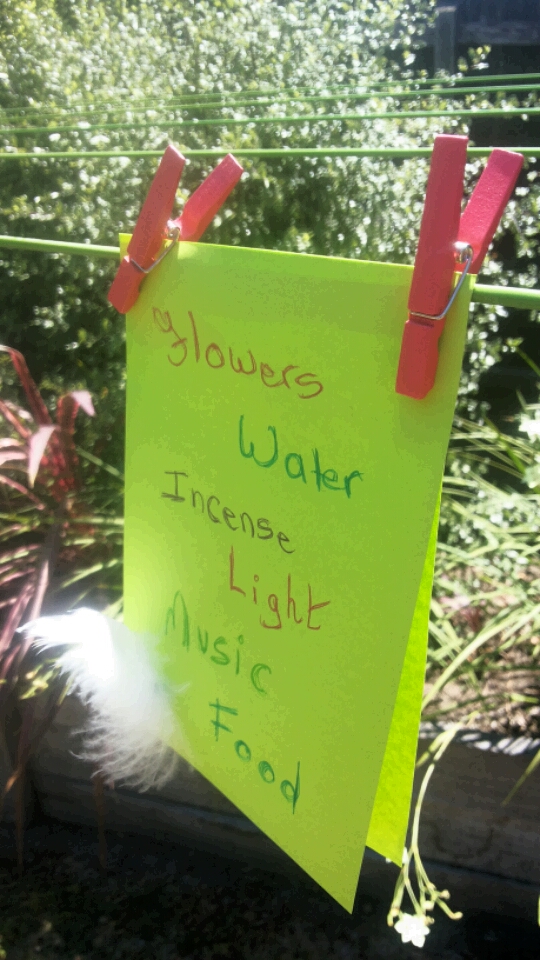 flowers
Water
Incense
Light
Music
Food